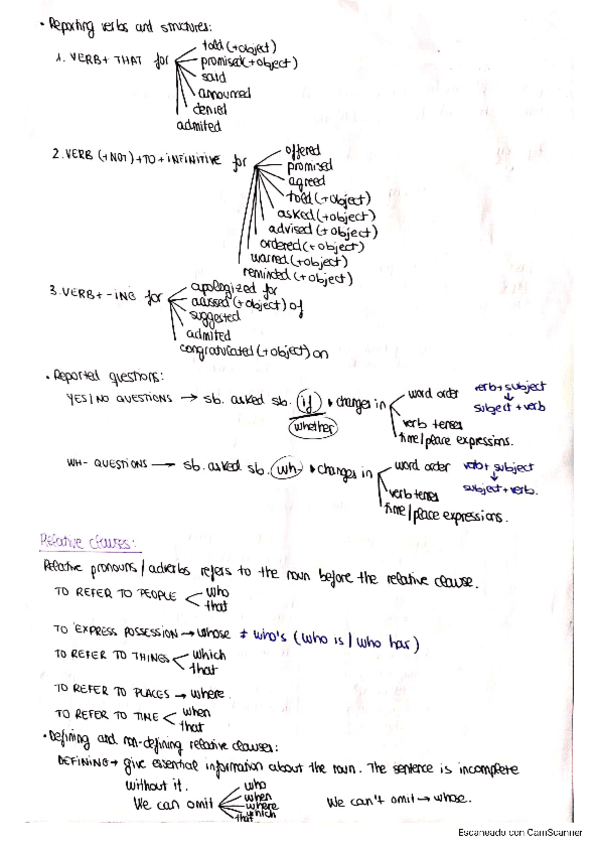 • Reporting verbs and structures:
1. VERB + THAT for
told (+object)
promised (+object)
said
announced
denied
admited
2. VERB (+NOT) + TO + INFINITIVE for
offered
promised
agreed
told (+object)
asked (+object)
advised (+object)
ordered (+object)
warned (+object)
reminded (+object)
3. VERB + -ING for
apologized for
acussed (+object) of
suggested
admited
congratulated (+object) on
• Reported questions:
YES/NO QUESTIONS → sb. asked sb. if
whether
changes in
word order
verb + subject
↓
subject + verb
verb tenses
time/place expressions.
WH- QUESTIONS → sb. asked sb. wh-
changes in
word order
verb + subject
↓
subject + verb.
verb tenses
time/place expressions.
Relative clauses:
Relative pronouns / adverbs refers to the noun before the relative clause.
TO REFER TO PEOPLE
who
that
TO EXPRESS POSSESSION → whose ≠ who's (who is / who has)
TO REFER TO THINGS
which
that
TO REFER TO PLACES → where.
TO REFER TO TIME
when
that
• Defining and non-defining relative clauses:
DEFINING → give essential information about the noun. The sentence is incomplete
without it.
We can omit
who
when
where
which
that
We can't omit → whose.
Escaneado con CamScanner